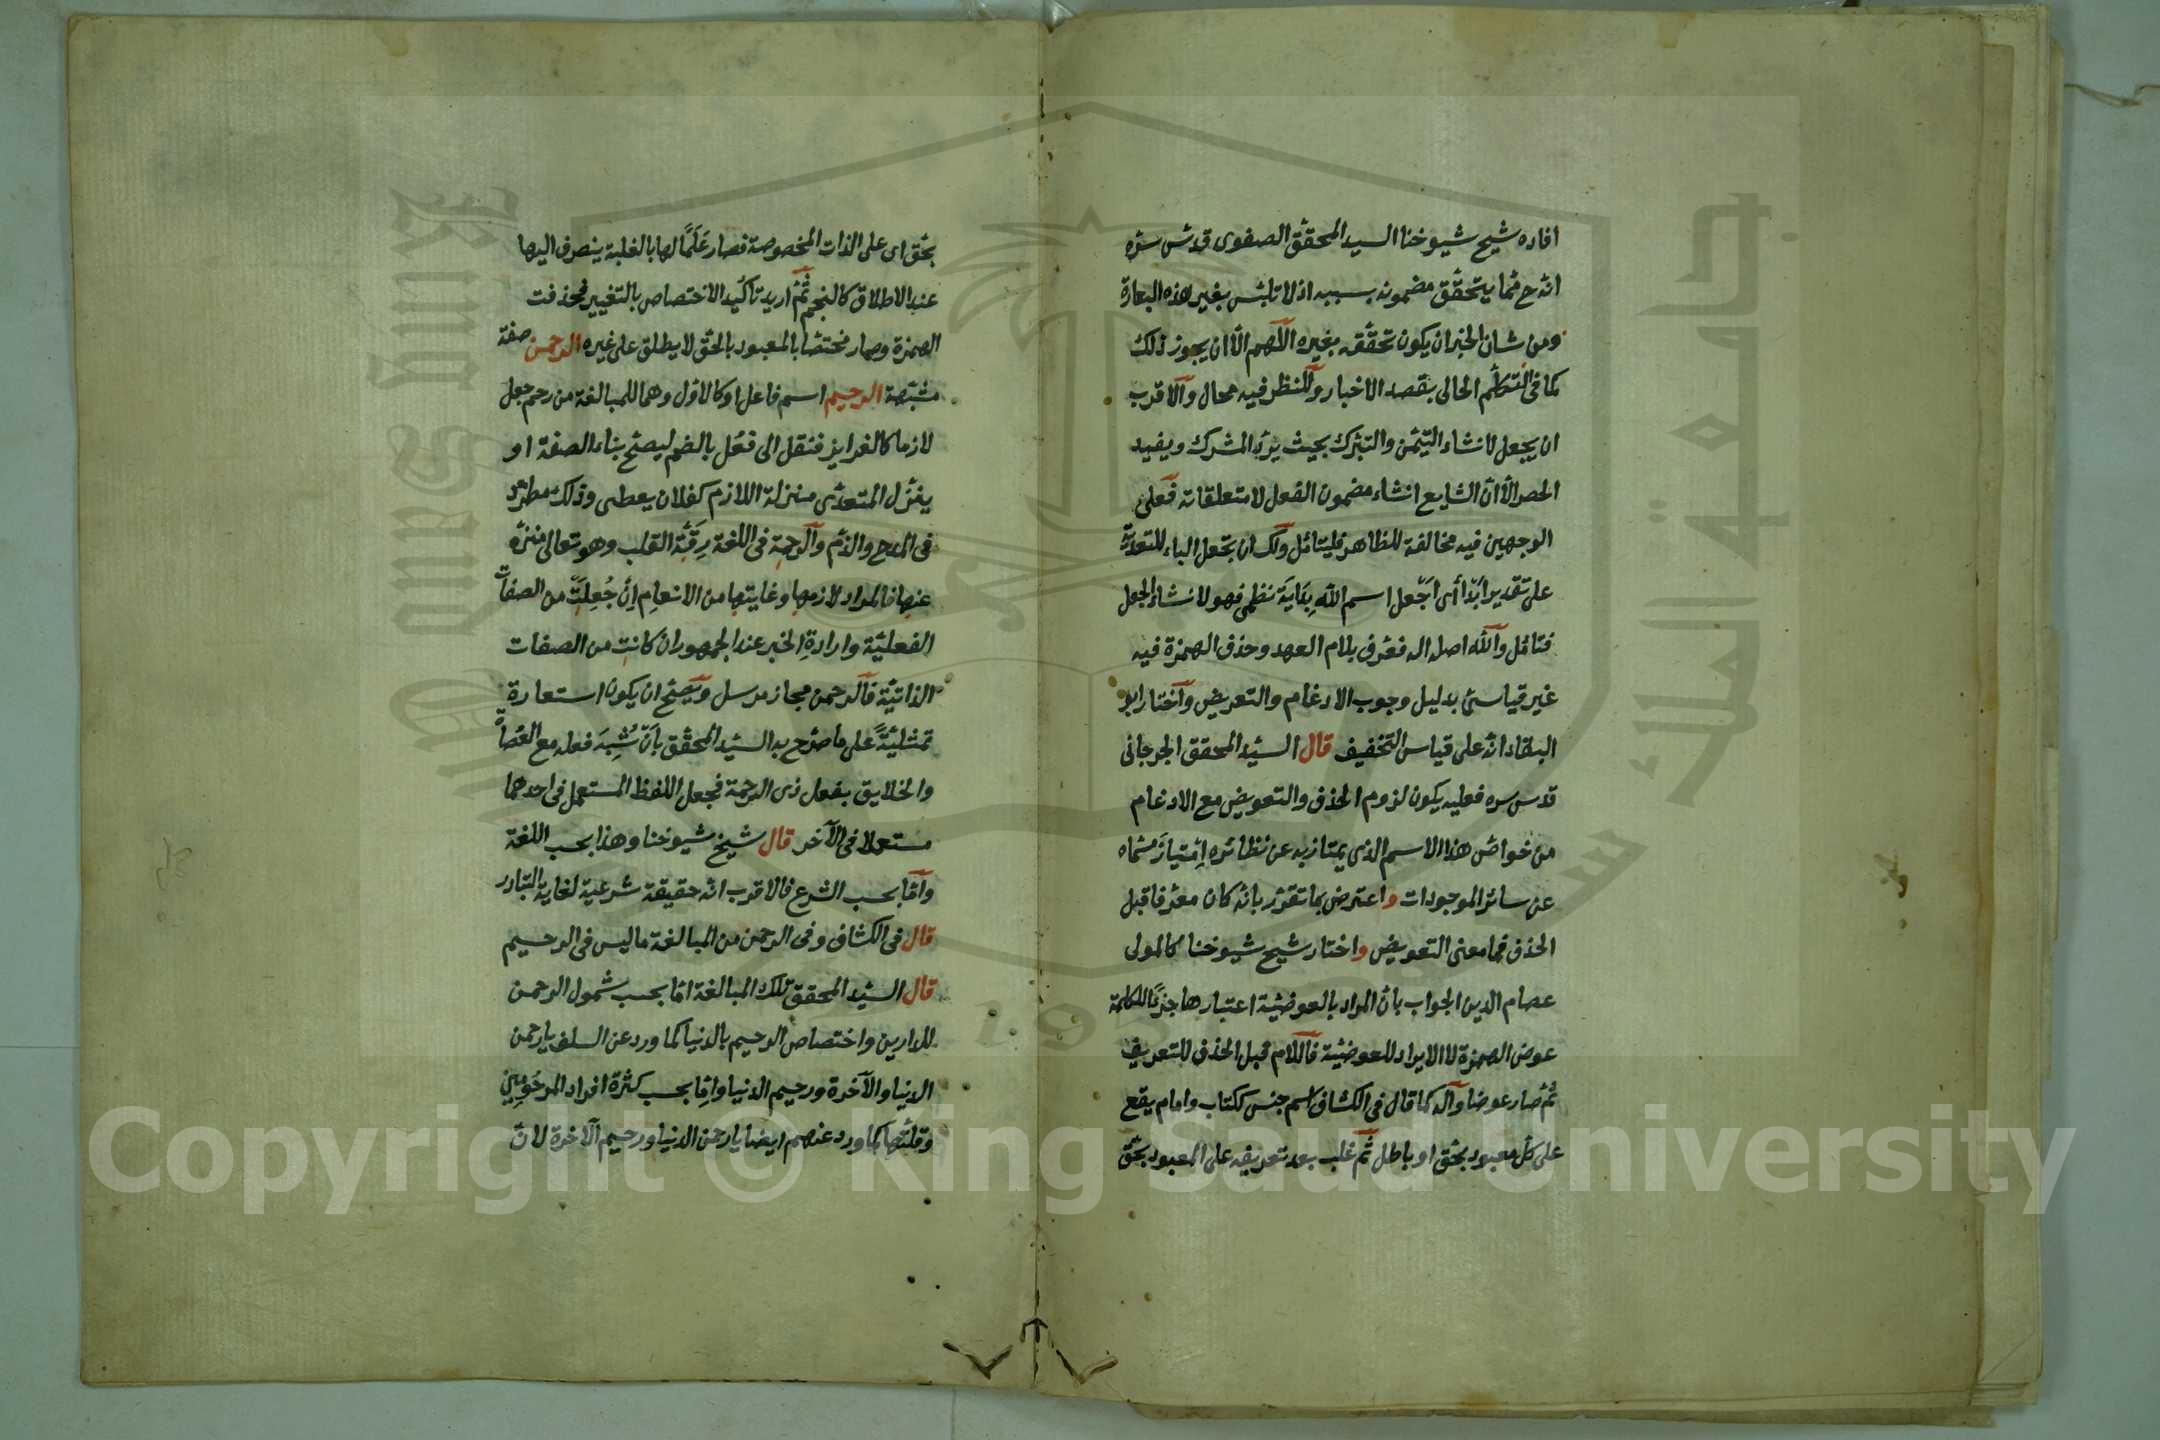 افاده شيخ شيوخنا السيد المحقق الصفوى قدس سره
انه ح مما يتحقق مضمونه بسببه اذ لا تلبس بغير هذه العبارة
ومن شان الخبر ان يكون تحققه بغيره اللهم الا ان يجوز ذلك
كما فى التكلم الحالى بقصد الاخبار وللنظر فيه مجال والاقرب
ان يجعل لانشاء التيمن والتبرك بحيث يرد المشرك ويفيد
الحصر الا ان الشايع انشاء مضمون الفعل لا متعلقاته فعلى
الوجهين فيه مخالفة للظاهر فليتأمل ولك ان تجعل الباء للتعدية
على تقدير ابدأ أى اجعل اسم الله بداية نظمى فهو لانشاء الجعل
فتامل والله اصله اله فعرف بلام العهد وحذف الهمزة فيه
غير قياسى بدليل وجوب الادغام والتعويض واختار ابو
البقاء انه على قياس التخفيف قال السيد المحقق الجرجانى
قدس سره فعليه يكون لزوم الحذف والتعويض مع الادغام
من خواص هذا الاسم الذى يمتاز به عن نظائره امتياز مسماه
عن سائر الموجودات واعترض بما تقرر بانه كان معرفا قبل
الحذف فما معنى التعويض واختار شيخ شيوخنا كالمولى
عصام الدين الجواب بان المراد بالعوضية اعتبارها جزأ للكلمة
عوض الهمزة لا الايراد للعوضية فاللام قبل الحذف للتعريف
ثم صار عوضا وآله كما قال فى الكشاف اسم جنس ككتاب وامام يقع
على كل معبود بحق او باطل ثم غلب بعد تعريفه على المعبود بحق
بحق اى على الذات المخصوصة فصار علما لها بالغلبة ينصرف اليها
عند الاطلاق كالنجم ثم اريد تاكيد الاختصاص بالتغيير فحذفت
الهمزة وصار مختصا بالمعبود بالحق لا يطلق على غيره الرحمن صفة
مشبهة الرحيم اسم فاعل او كالاول وهما للمبالغة من رحم جعل
لازما كالغرايز فنقل الى فعل بالضم ليصح بناء الصفة او
ينزل المتعدى منزلة اللازم كفلان يعطى وذلك مطرد
فى المدح والذم والرحمة فى اللغة رقة القلب وهو تعالى منزه
عنها فالمراد لازمها وغايتها من الانعام ان جعلت من الصفات
الفعلية وارادة الخير عند الجمهور ان كانت من الصفات
الذاتية فالرحمن مجاز مرسل ويصح ان يكون استعارة
تمثلية على ما صرح به السيد المحقق بان شبه فعله مع العصاة
والخلايق بفعل ذى الرحمة فجعل اللفظ المستعمل فى احدهما
مستعملا فى الآخر قال شيخ شيوخنا وهذا بحسب اللغة
وأما بحسب الشرع فالاقرب انه حقيقة شرعية لغاية التبادر
قال فى الكشاف وفى الرحمن من المبالغة ما ليس فى الرحيم
قال السيد المحقق تلك المبالغة اما بحسب شمول الرحمن
للدارين واختصاص الرحيم بالدنيا كما ورد عن السلف يا رحمن
الدنيا والآخرة ورحيم الدنيا واما بحسب كثرة افراد المرحومين
وقلتها كما ورد عنهم ايضا يا رحمن الدنيا ورحيم الآخرة لان
جامعة الملك سعود
King Saud University
Copyright © King Saud University